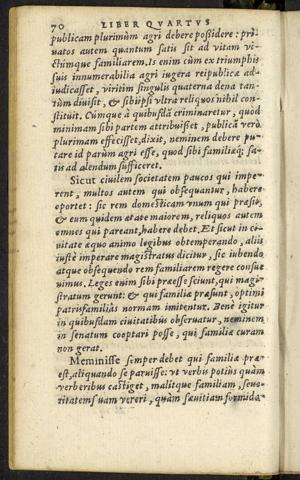 70 LIBER QVARTVS
publicam plurimùm agri debere poſsidere: pri-
uatos autem quantum ſatis ſit ad vitam vi-
ctúmque familiarem. Is enim cùm ex triumphis
ſuis innumerabilia agri iugera reipublicæ ad-
iudicaſſet, viritim ſingulis quaterna dena tan-
tùm diuiſit, & ſibiipſi vltra reliquos nihil con-
ſtituit. Cúmque à quibuſdā criminaretur, quòd
minimam ſibi partem attribuiſſet, publicā verò
plurimam effeciſſet, dixit, neminem debere pu-
tare id parùm agri eſſe, quod ſibi familiæq; ſa-
tis ad alendum ſufficeret.
Sicut ciuilem ſocietatem paucos qui impe-
rent, multos autem qui obſequantur, habere
oportet: ſic rem domeſticam vnum qui præſit,
& eum quidem ætate maiorem, reliquos autem
omnes qui pareant, habere debet. Et ſicut in ci-
uitate æquo animo legibus obtemperando, aliis
iuſtè imperare magiſtratus dicitur, ſic iubendo
atque obſequendo rem familiarem regere conſue
uimus. Leges enim ſibi præeſſe ſciunt, qui magi-
ſtratum gerunt: & qui familiæ præſunt, optimi
patriſfamiliâs normam imitentur. Benè igitur
in quibuſdam ciuitatibus obſeruatur, neminem
in ſenatum cooptari poſſe, qui familiæ curam
non gerat.
Meminiſſe ſemper debet qui familiæ præ-
eſt, aliquando ſe paruiſſe: vt verbis potiùs quàm
verberibus caſtiget, malitque familiam, ſeue-
ritatem ſuam vereri, quàm ſæuitiam formida-